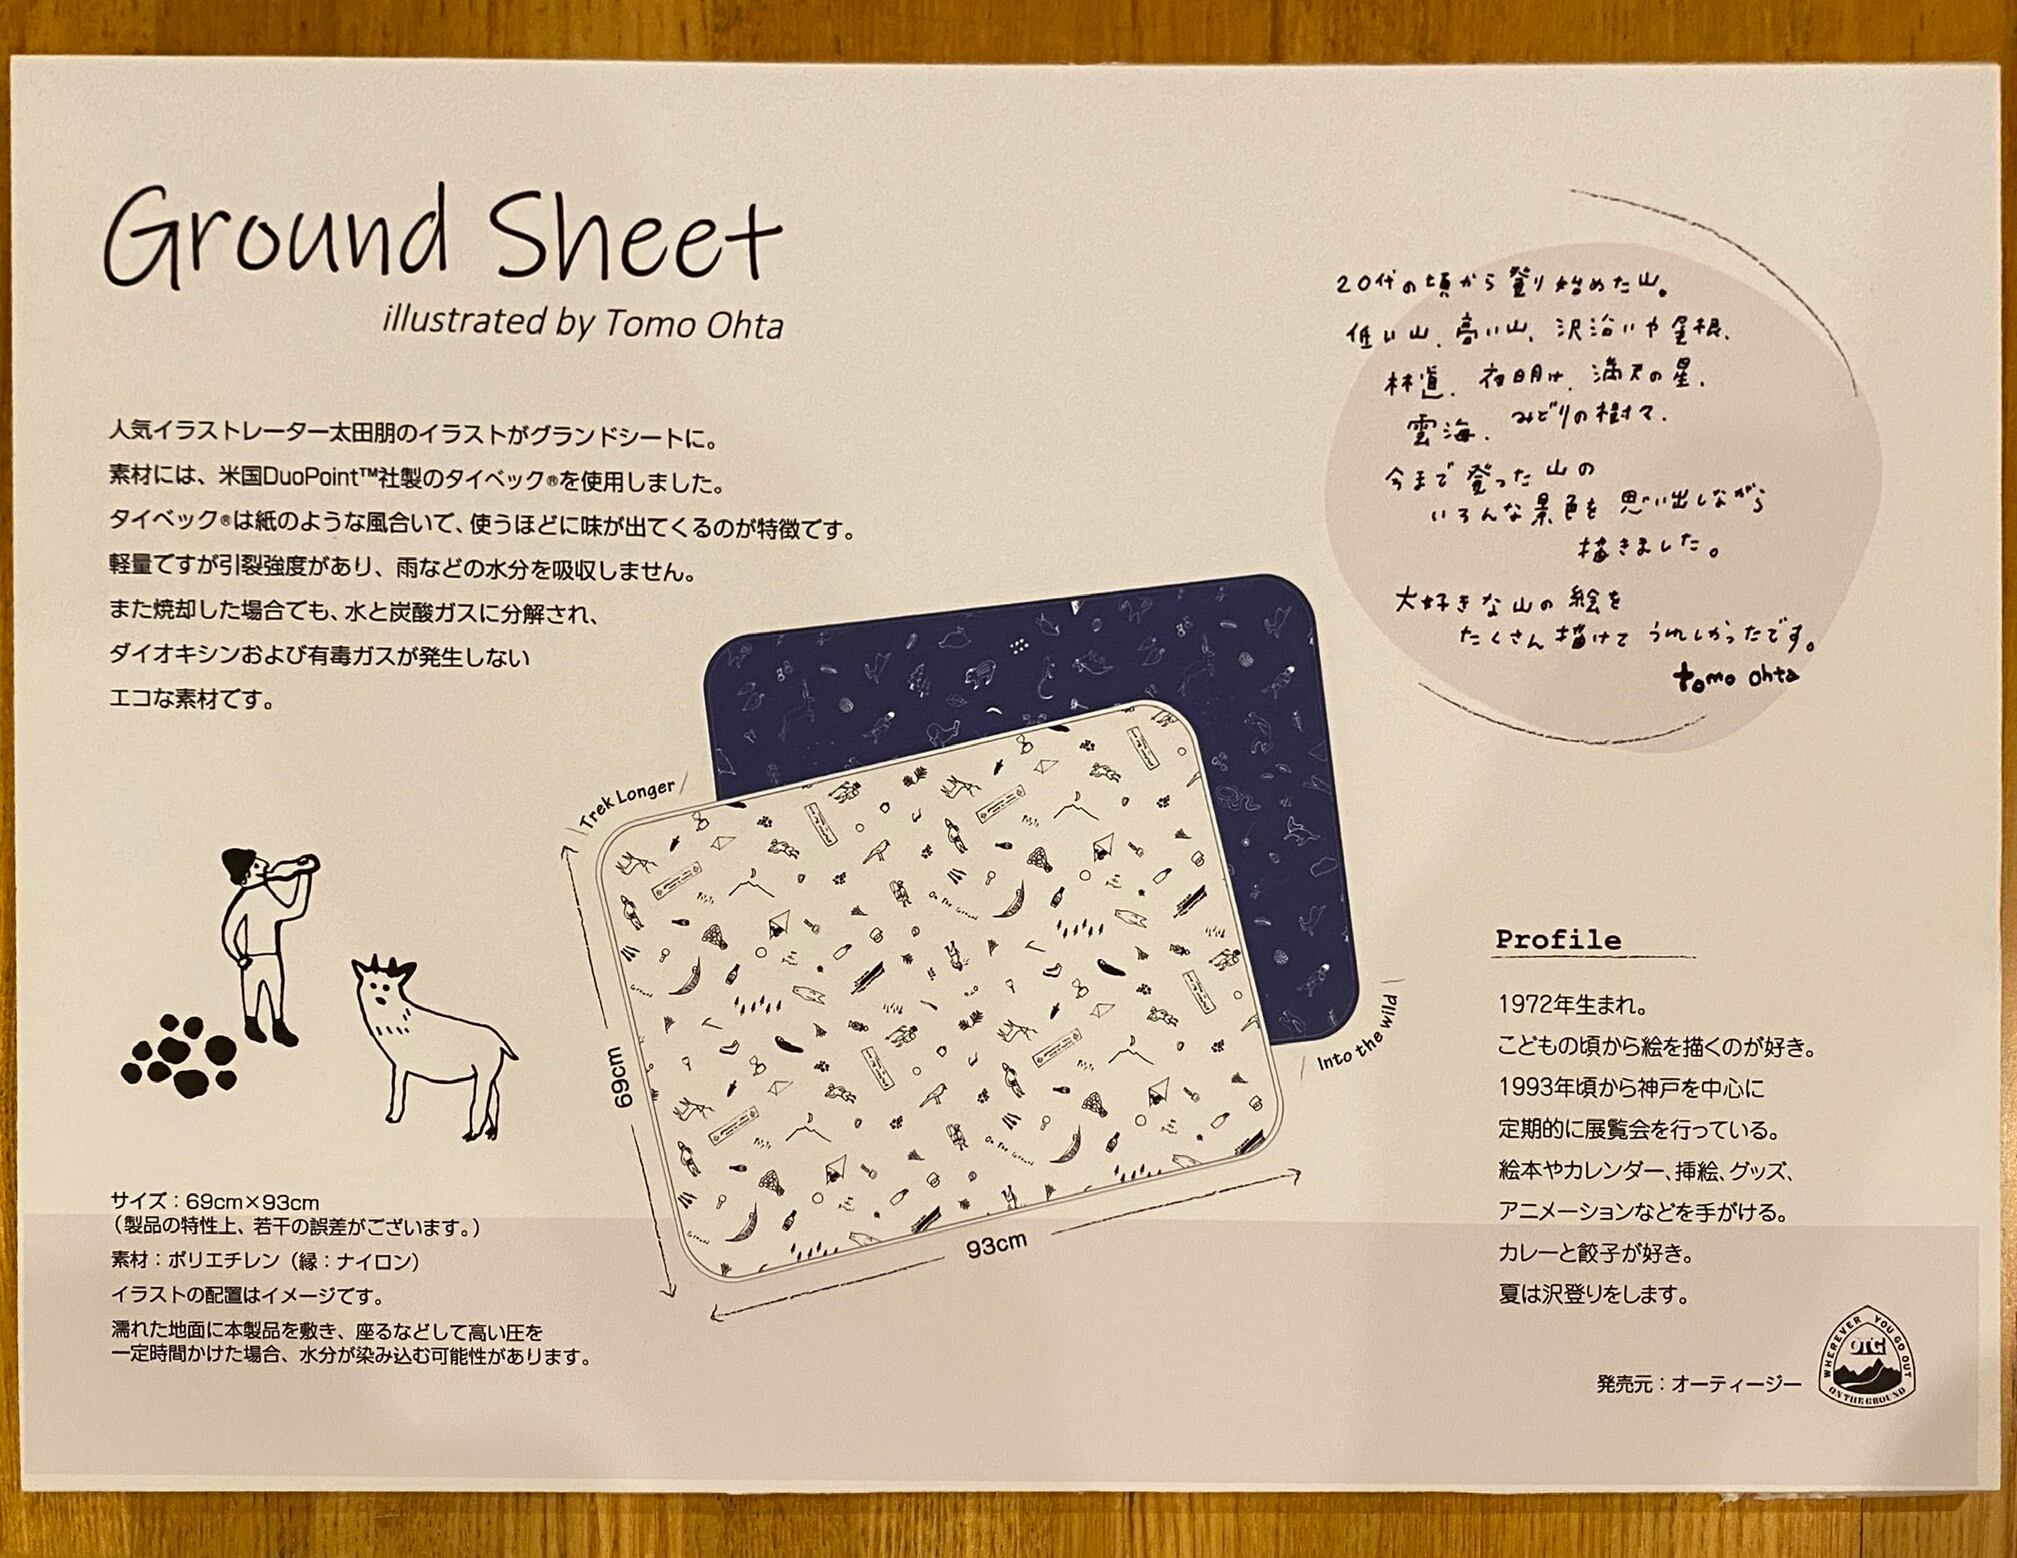 Ground Sheet
illustrated by Tomo Ohta
人気イラストレーター太田朋のイラストがグランドシートに。
素材には、米国DuoPoint™社製のタイベック®を使用しました。
タイベック®は紙のような風合いで、使うほどに味が出てくるのが特徴です。
軽量ですが引裂強度があり、雨などの水分を吸収しません。
また焼却した場合でも、水と炭酸ガスに分解され、
ダイオキシンおよび有毒ガスが発生しない
エコな素材です。
20代の頃から登り始めた山。
低い山、高い山、沢沿いや尾根、
林道、夜明け、満天の星、
雲海、みどりの樹々、
今まで登った山の
いろんな景色を思い出しながら
描きました。
大好きな山の絵を
たくさん描けてうれしかったです。
tomo ohta
Trek Longer
Into the wild
69cm
93cm
サイズ：69cm×93cm
（製品の特性上、若干の誤差がございます。）
素材：ポリエチレン（縁：ナイロン）
イラストの配置はイメージです。
濡れた地面に本製品を敷き、座るなどして高い圧を
一定時間かけた場合、水分が染み込む可能性があります。
Profile
1972年生まれ。
こどもの頃から絵を描くのが好き。
1993年頃から神戸を中心に
定期的に展覧会を行っている。
絵本やカレンダー、挿絵、グッズ、
アニメーションなどを手がける。
カレーと餃子が好き。
夏は沢登りをします。
発売元：オーティージー
WHEREVER YOU GO OUT
OTG
ON THE GROUND